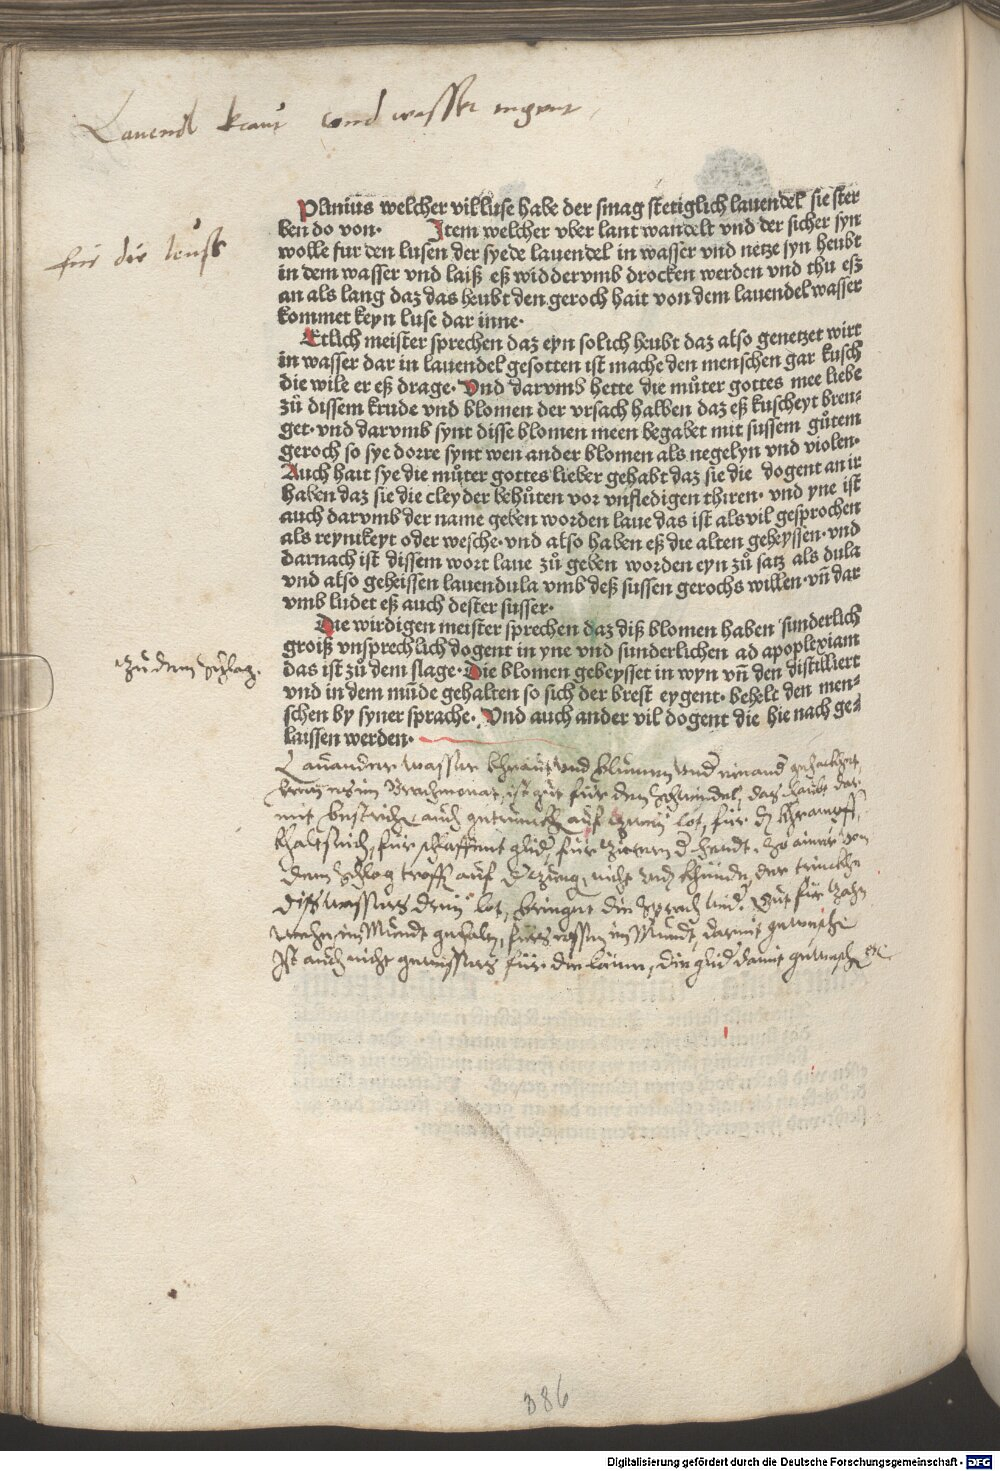 Lauendl kraut vnd wasser
Planius welcher vil luse habe der smag stetiglich lauendel sie ster
ben do von· Item welcher vber lant wandelt vnd der sicher syn
für die leuss
wolle fur den lusen der syede lauendel in wasser vnd netze syn heubt
in dem wasser vnd laiß eß widdervmb drocken werden vnd thu eß
an als lang daz das heubt den geroch hait von dem lauendel wasser
kommet keyn luse dar inne·
Etlich meister sprechen daz eyn solich heubt daz also genetzet wirt
in wasser dar in lauendel gesotten ist mache den menschen gar kusch
die wile er eß drage· Vnd darvmb hette die můter gottes mee liebe
zů dissem krude vnd blomen der vrsach halben daz eß kuscheyt bren⸗
get· vnd darvmb synt disse blomen meen begabet mit sussem gůtem
geroch so sye dorre synt wen ander blomen als negelyn vnd violen·
Auch hait sye die můter gottes lieber gehabt daz sie die dogent an ir
haben daz sie die cleyder behůten vor vnfledigen thiren· vnd yne ist
auch darvmb der name geben worden laue das ist als vil gesprochen
als reynikeyt oder wesche· vnd also haben eß die alten geheyssen· vnd
darnach ist dissem wort laue zů geben worden eyn zů satz als dula
vnd also geheissen lauendula vmb deß sussen gerochs willen· vn̄ dar
vmb ludet eß auch dester susser·
Die wirdigen meister sprechen daz diß blomen haben sunderlich
groiß vnsprechlich dogent in yne vnd sunderlichen ad apoplexiam
zu dem schlag.
das ist zů dem slage· Die blomen gebeysset in wyn vn̄ den distilliert
vnd in dem mūde gehalten so sich der brest eygent· behelt den men⸗
schen by syner sprache· Vnd auch ander vil dogent die hie nach ge⸗
laissen werden·
Lauander wasser khraut und blumen und
im Brachmonat, ist gut für den schwindel, das haubt dar
mit bestrichen auch getrunckh auf zway lot, für den khrampff,
für zittern d hendt. So ainer von
dem schlag auf d zung, nicht khündt, der trinckh
diss wassers drey lot, bringet die sprach wider. Gut für zahn
wehe, im Mundt gehalten, im Mundt, darmit gewaschen
Ist auch nicht für die die glider damit gewaschen etc
386
Digitalisierung gefördert durch die Deutsche Forschungsgemeinschaft - DFG